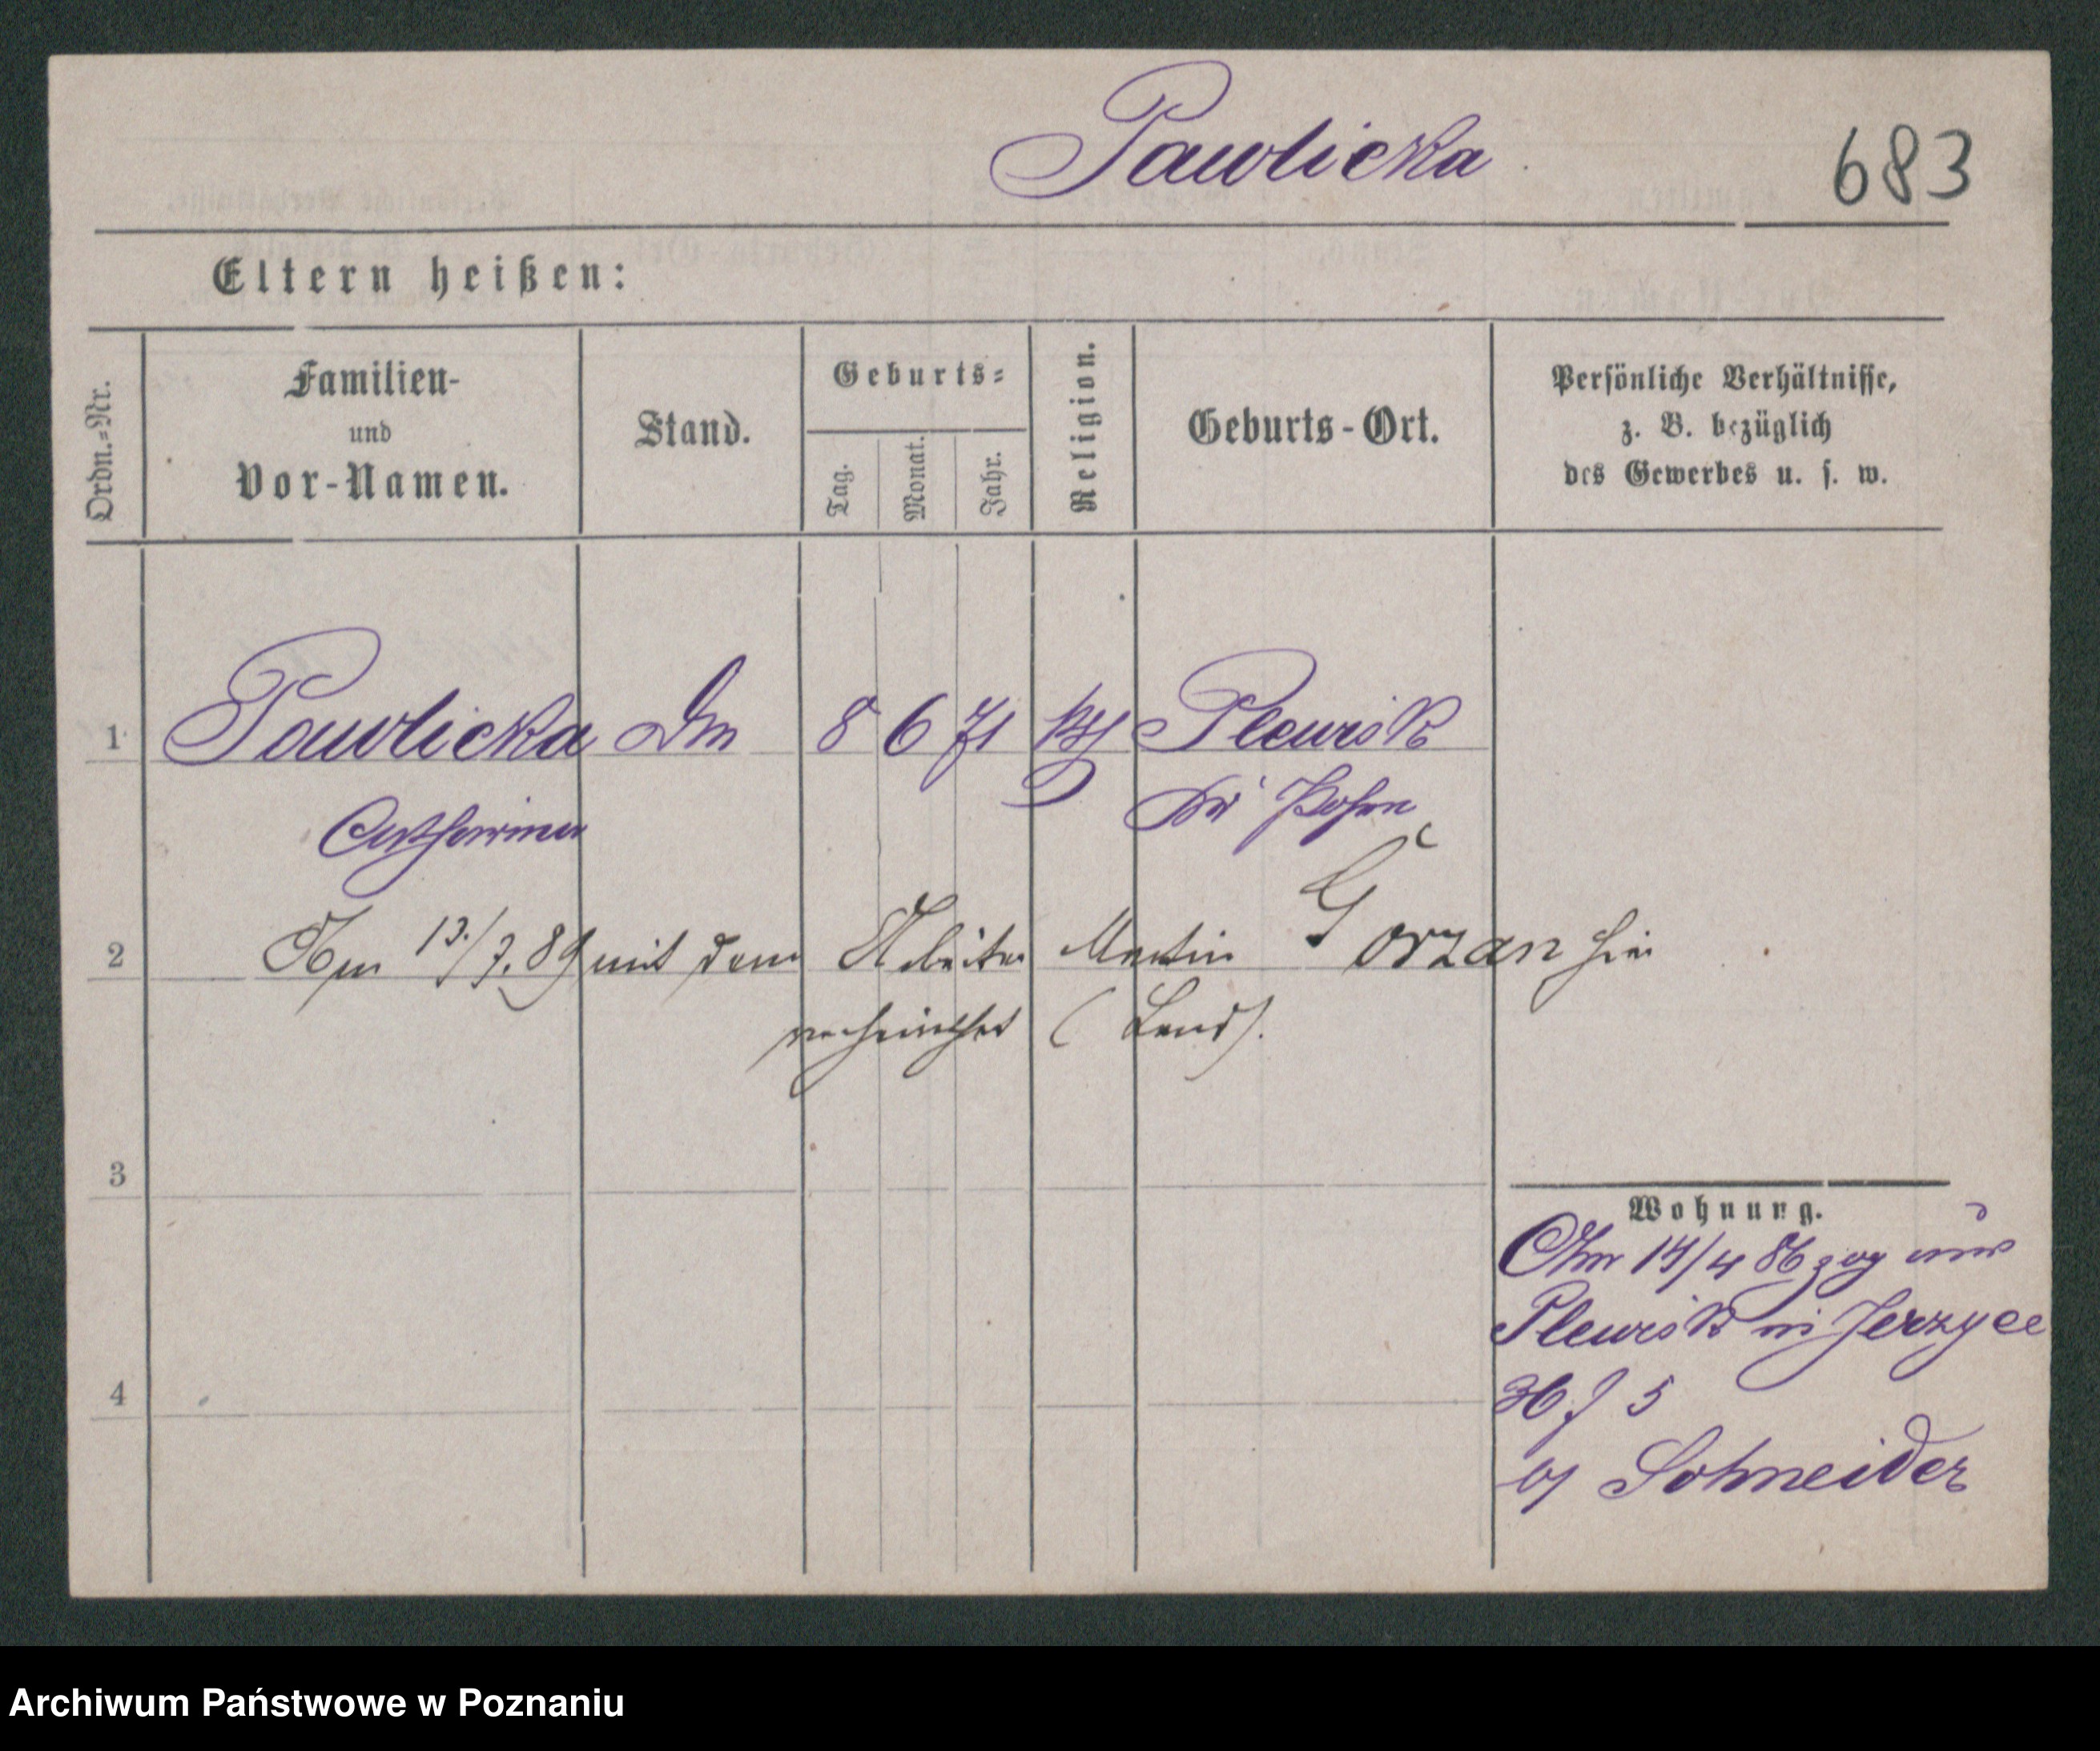 Pawlicka 683
Eltern heißen:
Ordn.=Nr.
Familien-
und
Vor-Namen.
Stand.
Geburts=
Tag.
Monat.
Jahr.
Religion.
Geburts-Ort.
Persönliche Verhältnisse,
z. B. bezüglich
des Gewerbes u. s. w.
1 Pawlicka 8 6 71 Plewisk
Catharina Kr Posen
2 Am 13./7. 89 mit dem Arbeiter Martin Gorzan hier
verheirathet (Land).
3
Wohnung.
Am 14/4 86 zog aus
Plewisk in Jerzyce
4
36 f 5
b/ Schneider
Archiwum Państwowe w Poznaniu